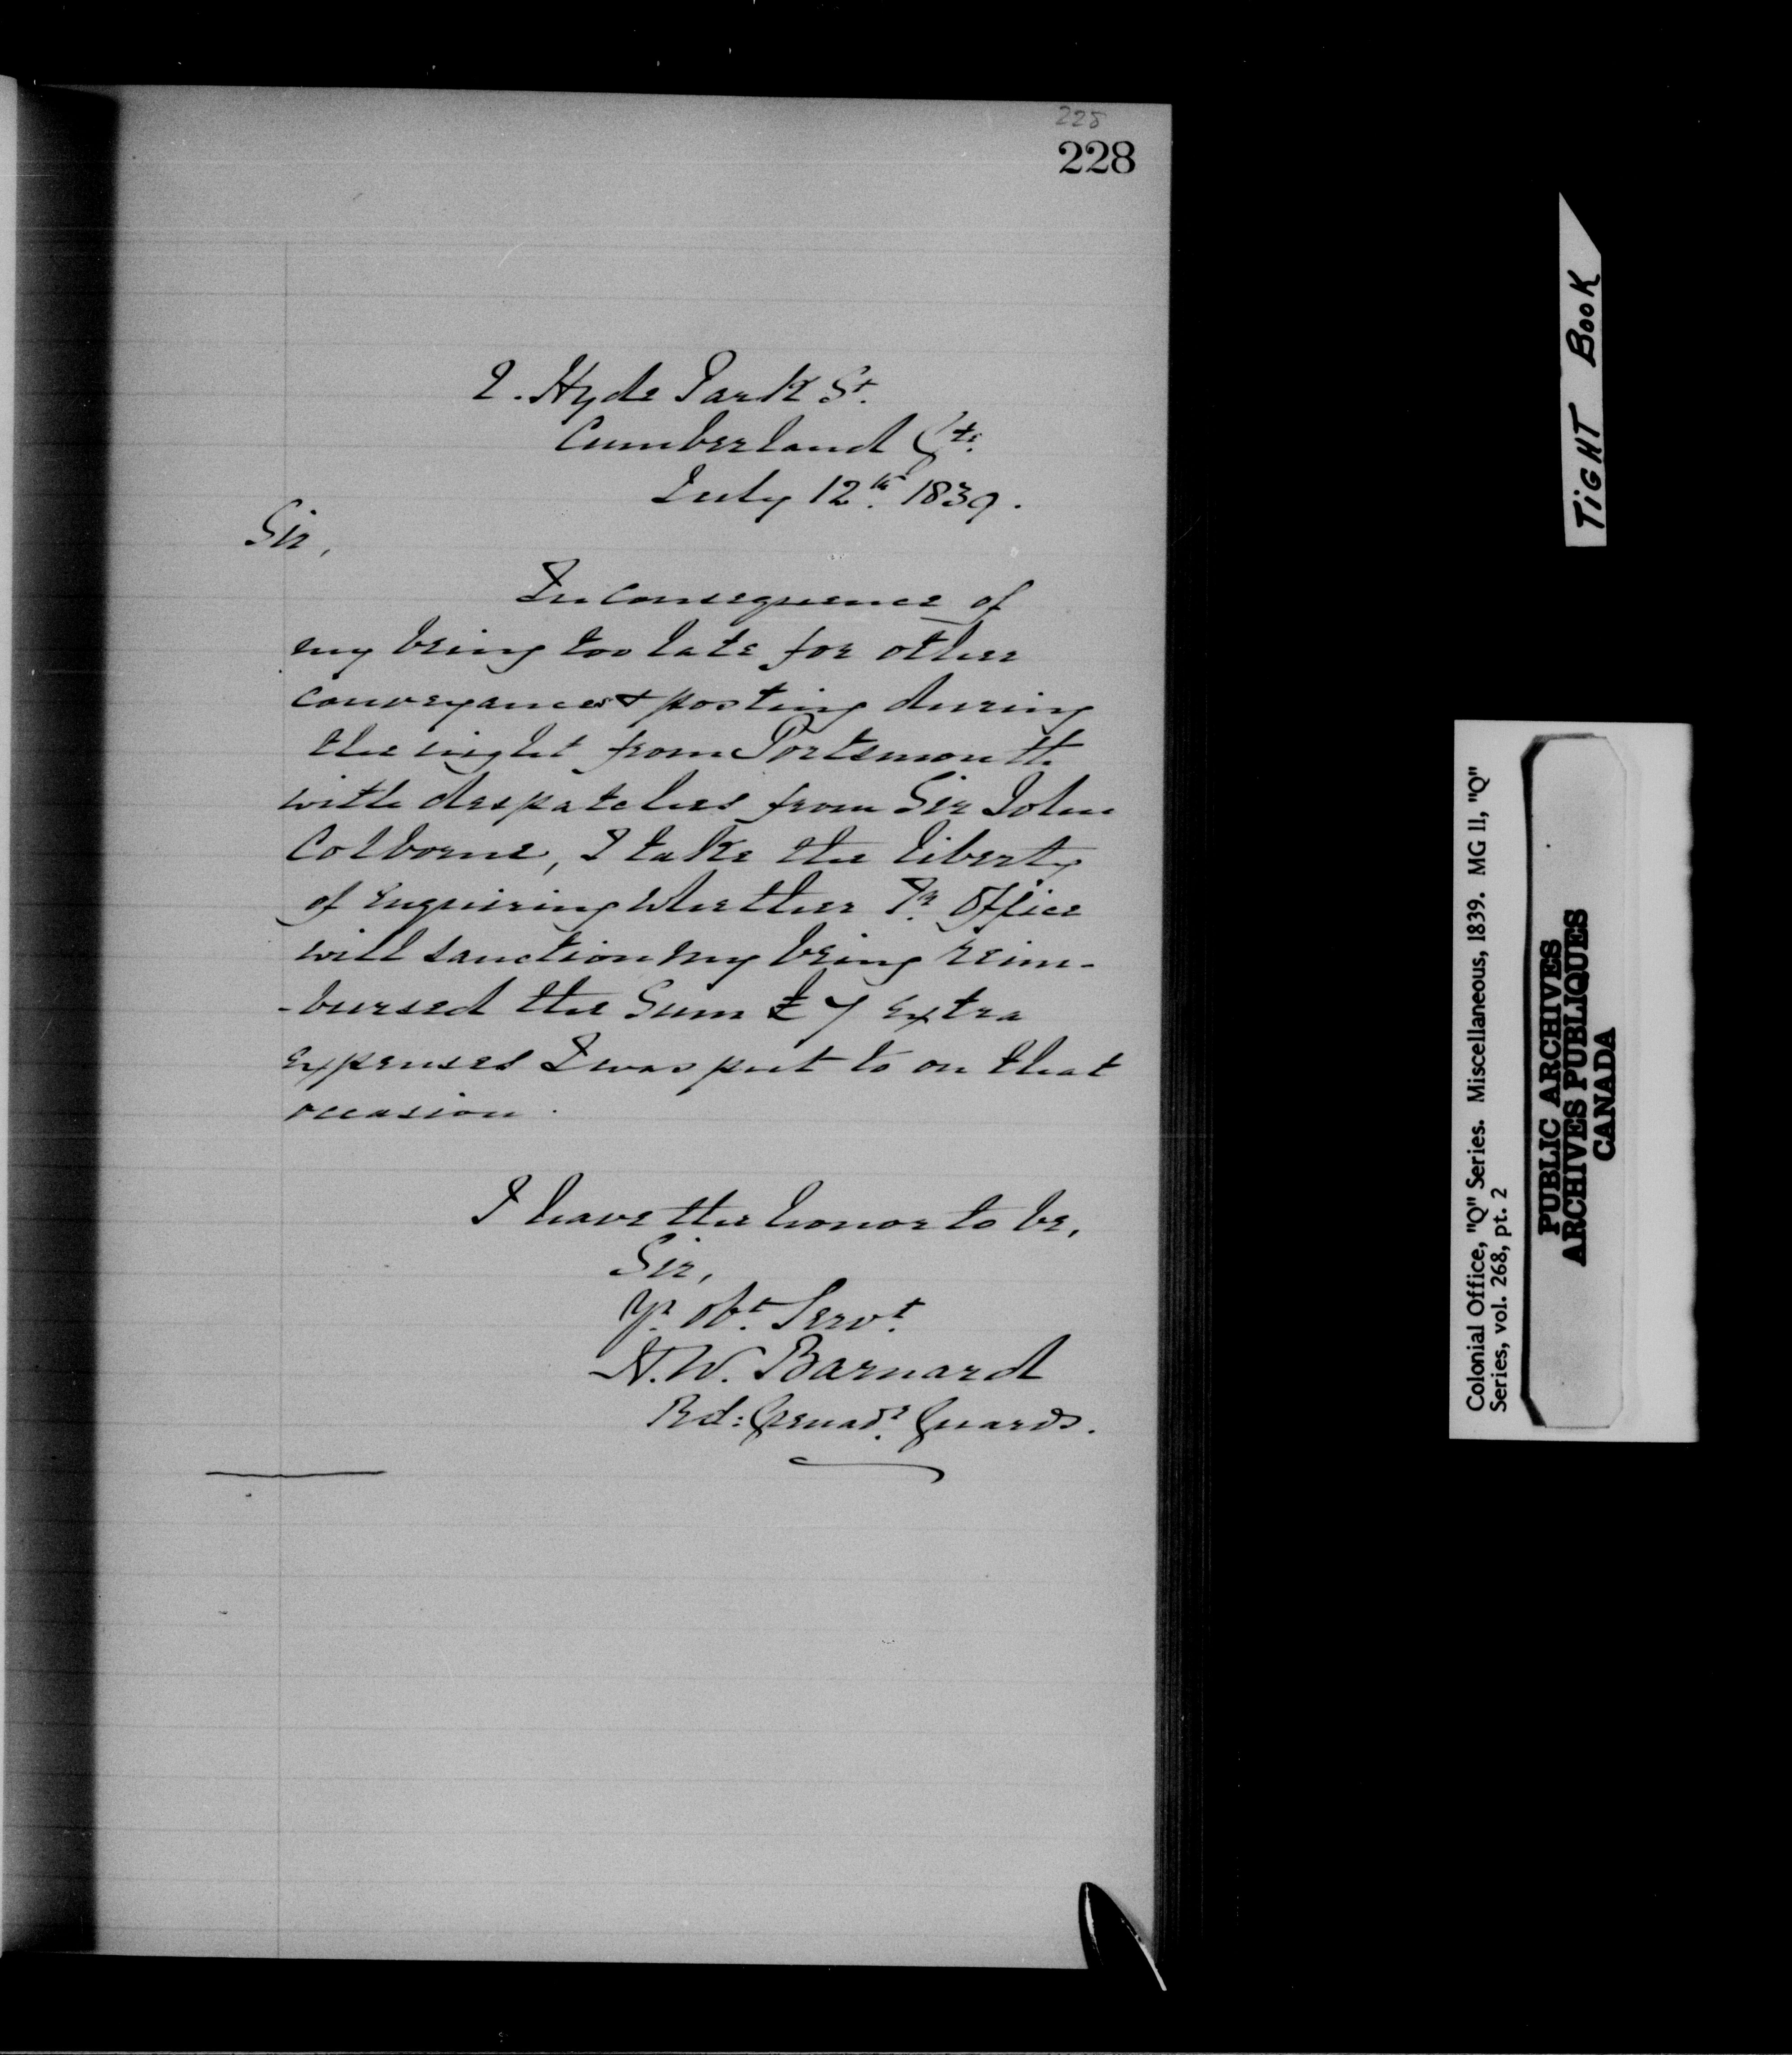 228
228
2. Hyde Park St.
Cumberland Gte.
July 12th. 1839.
Sir,
In consequence of
my being too late for other
conveyances & posting during
the night from Portsmouth
with despatches from Sir John
Colborne, I take the liberty
of enquiring whether Yr. Office
will sanction my being reim-
-bursed the Sum £7 extra
expenses I was put to on that
occasion.
I have the honor to be,
Sir,
Yr. Obt. Servt.
H. W. Barnard
Grenadr. Guards.
TIGHT BOOK
Colonial Office, "Q" Series. Miscellaneous, 1839. MG 11, "Q"
Series, vol. 268, pt. 2
PUBLIC ARCHIVES
ARCHIVES PUBLIQUES
CANADA